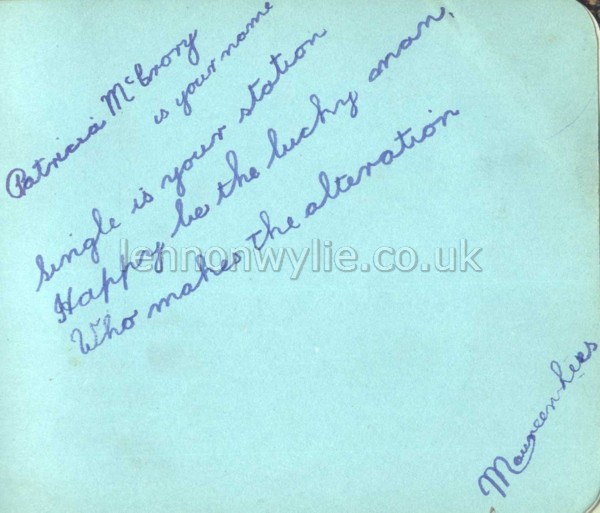 Patricia McCrory
is your name
Single is your station
Happy be the lucky man,
Who makes the alteration
lennonwylie.co.uk
Maureen Lees